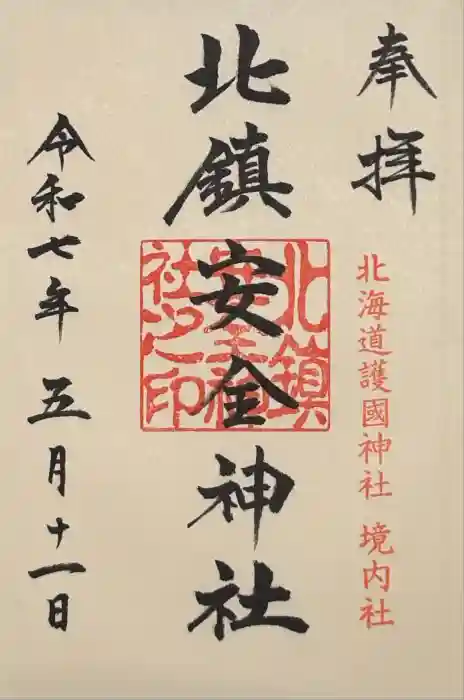 奉拝
北海道護國神社 境内社
北鎮安全神社
北鎮
安全神
社之印
令和七年 五月十一日